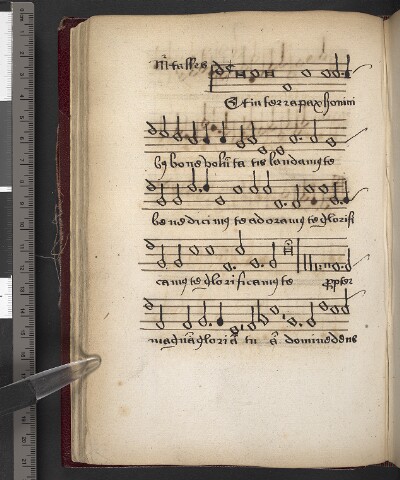 Mr talles
Et in terra pax homini
bus bone volūtatis laudamus te
benedicimus te adoramus te glorifi
camus te glorificamus te propter
magnā gloriā tuā domine deus